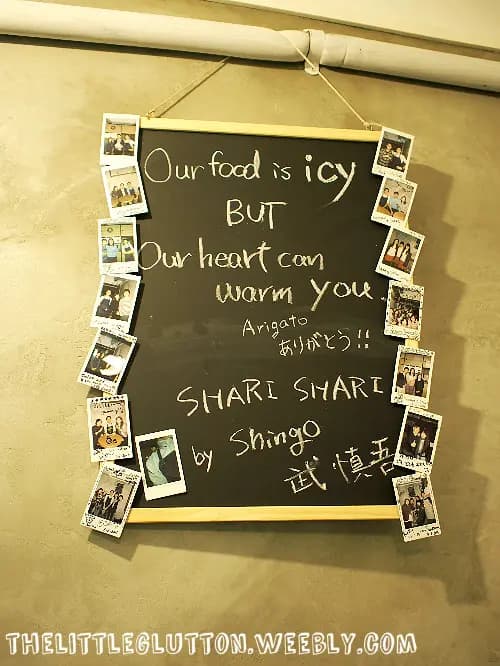 Our food is icy
BUT
Our heart can
warm you.
Arigato
ありがとう!!
SHARI SHARI
by Shingo
武 慎吾
THELITTLEGLUTTON.WEEBLY.COM